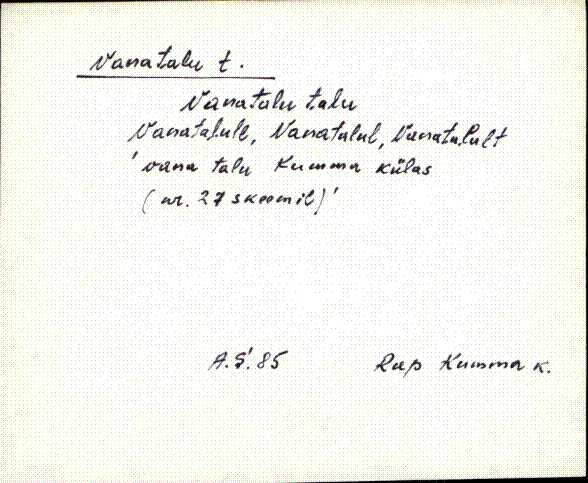 Vanatalu t.
Vanatalu talu
Vanatalule, Vanatalul, Vanatalult
'vana talu Kumma külas
(nr. 27 skeemil)'
A.Š. 85 Rap Kumma k.